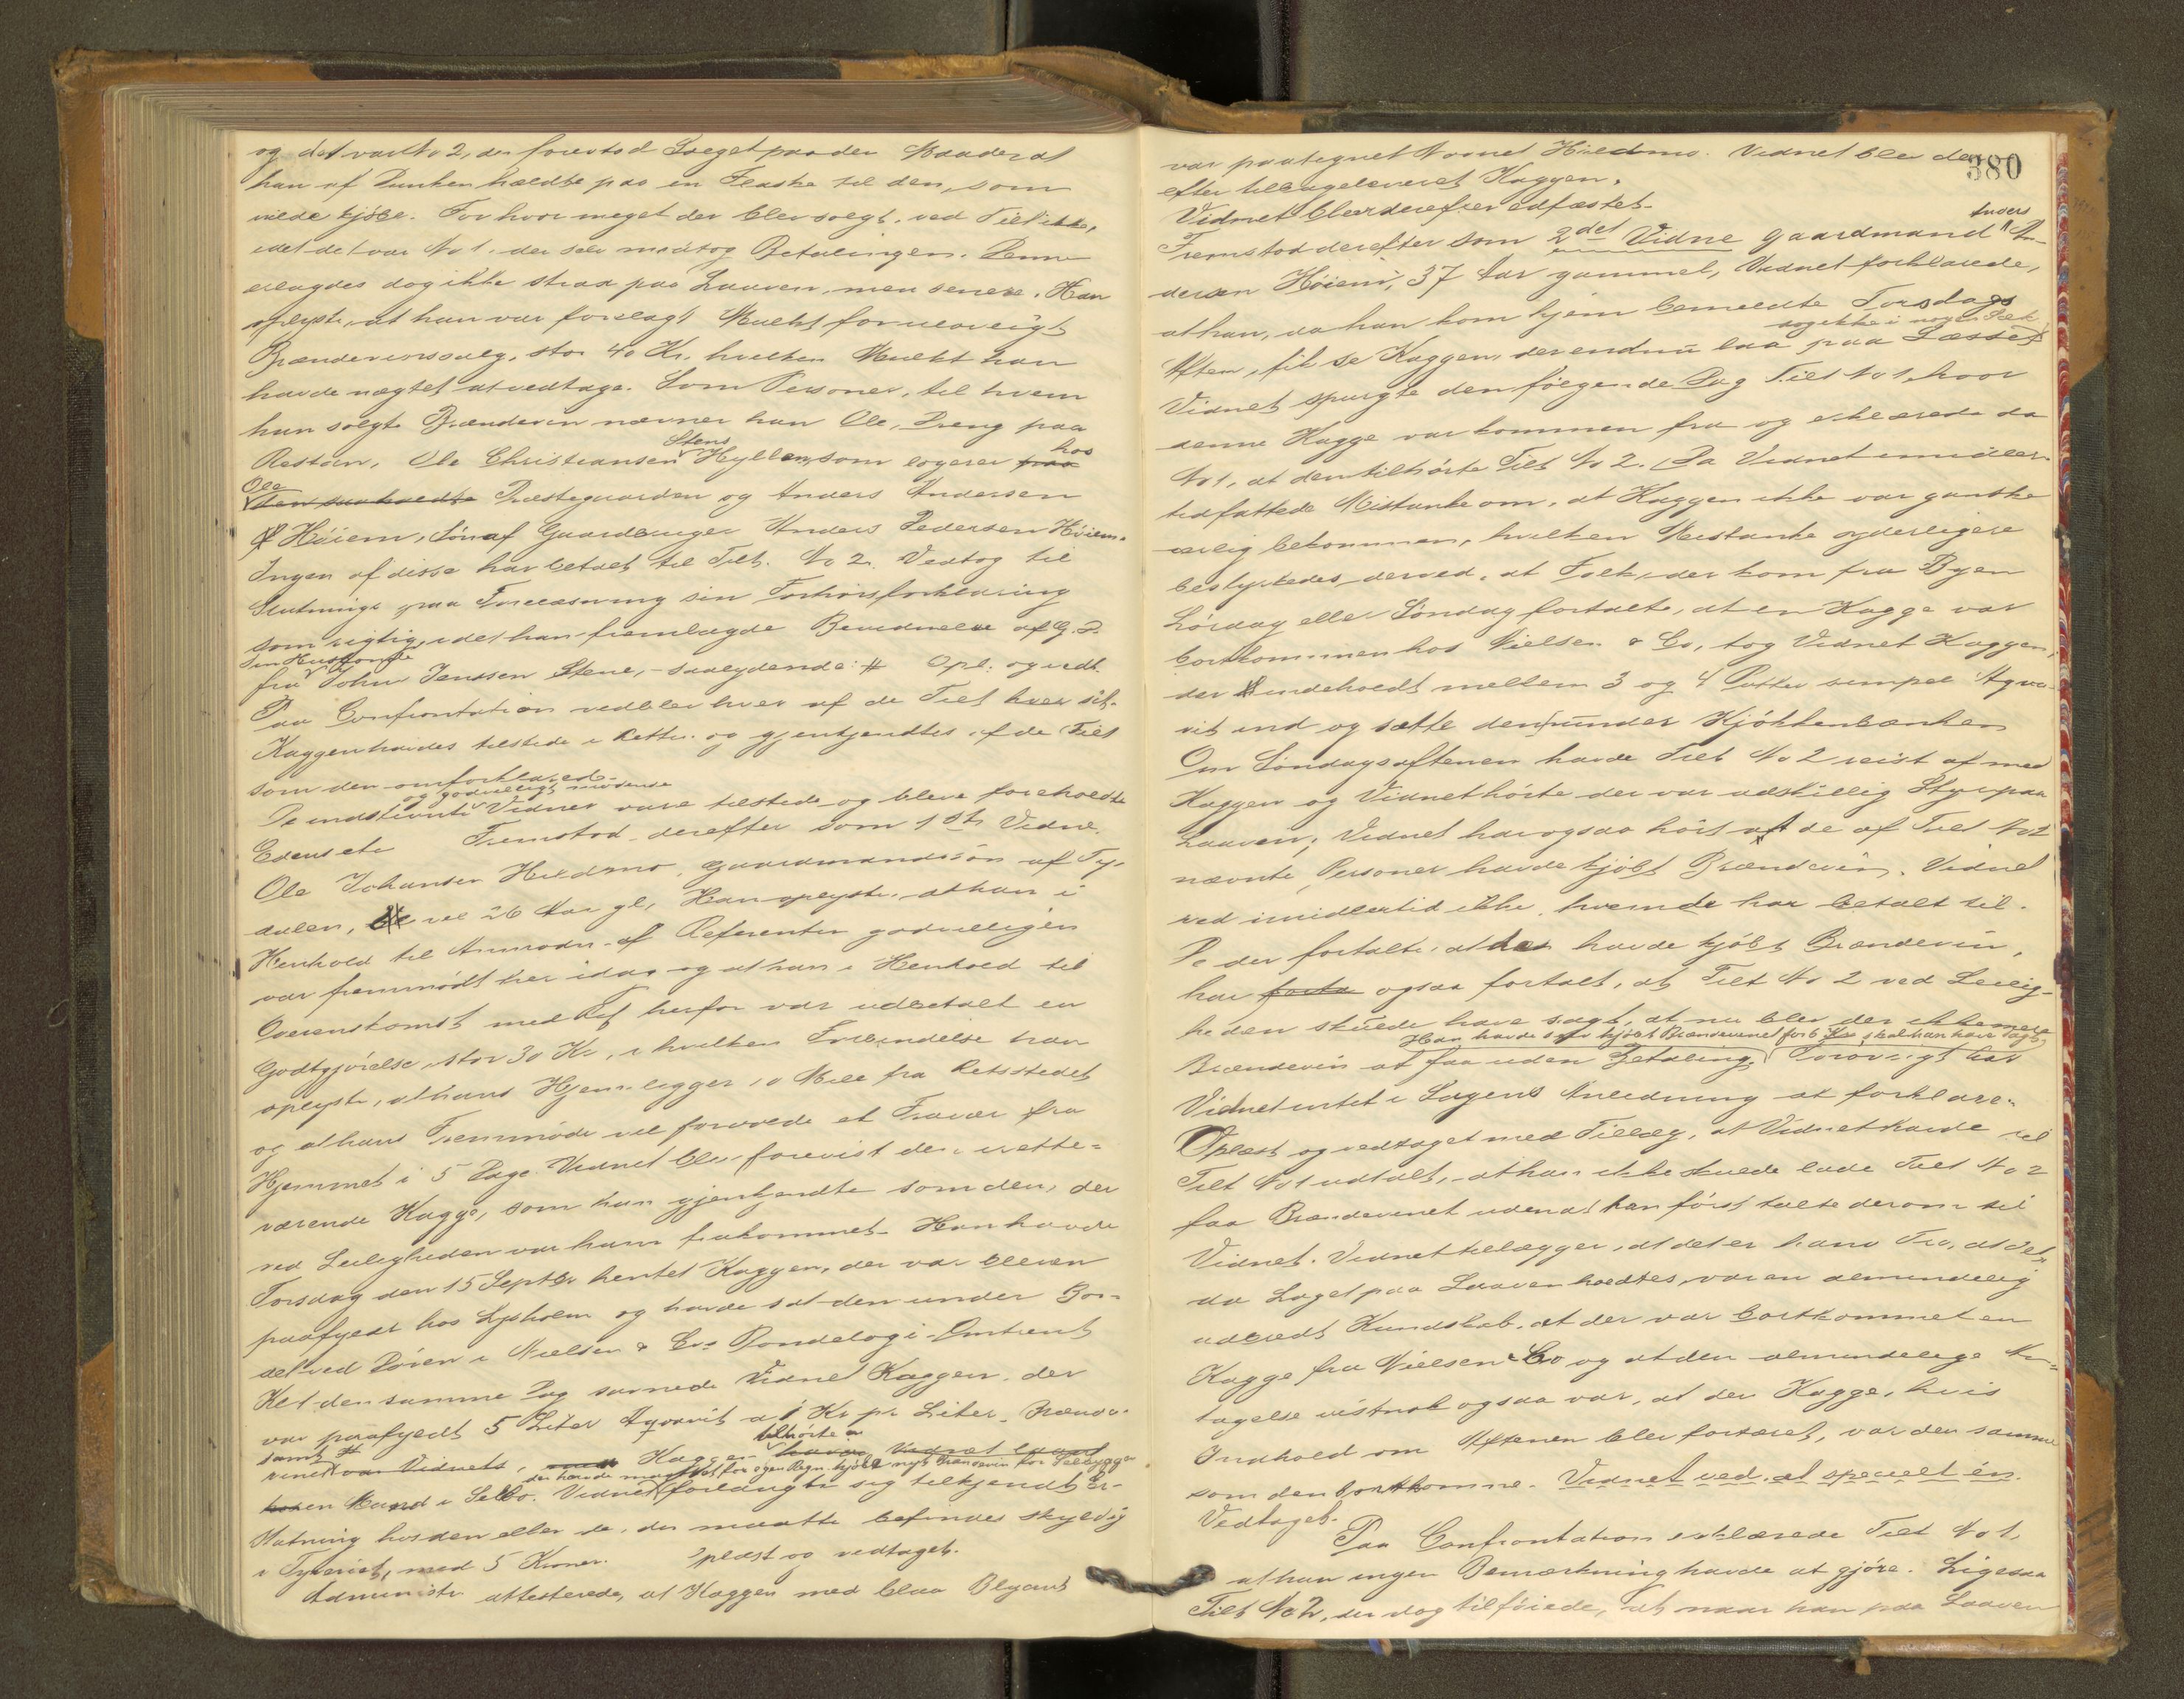 og det var No 2, der forestod Salget paa den Maade at
han af Dunken hældte paa en Flaske til dem, som
vilde kjøbe. For hvor meget der blev solgt, ved Tilt ikke,
idet det var No 1, der selv modtog Betalingen. Denne
erlagdes dog ikke strax paa Laaven, men senere. Han
oplyste, at han var forelagt Mulkt for ulovligt
Brændevinssalg, stor 40 Kr, hvilken Mulkt han
havde nægtet at vedtage. Som Personer, til hvem
han solgte Brændevin nævner han Ole, Dreng paa
Rostøen, Ole Christiansen Stens Hyllen, som logerer hos
Ole Præstegaarden og Anders Andersen
Høiem, Søn af Gaardbruger Anders Pedersen Høiem.
Ingen af disse har betalt til Tilt. No 2. Vedtog til
Slutning paa Forelæsning sin Forhørsforklaring
som rigtig, idet han fremlagde Bevidnelse af G. D.
fra sin Husbonde John Janssen Stene, - saalydende: # Opl. og vedt.
Paa Confrontation vedblev hver af de Tilt hver sit.
Kaggen havdes tilstede i Retten og gjenkjendtes af de Tilt
som den omforklarede.
De indstevnte og godvilligt mødende Vidner vare tilstede og bleve foreholdte
Edens etc Fremstod derefter som 1ste Vidne,
Ole Johansen Hildmo, gaardmandssøn af Ty-
dalen, vel 26 Aar gl, Han oplyste, at han i
Henhold til Anmodn. af Referenten godvilligen
var fremmødt her idag og at han i Henhold til
Overenskomst med Ref herfor var udbetalt en
Godtgjørelse, stor 30 Kr, i hvilken Forbindelse han
oplyste, at hans Hjem ligger 10 Mile fra Retsstedet
og at hans Fremmøde vil forvolde et Fravær fra
Hjemmet i 5 Dage. Vidnet blev forevist den i rette-
værende Kagge, som han gjenkjendte som den, der
ved Leiligheden var ham frakommet. Han havde
Torsdag den 15 Septbr hentet Kaggen, der var bleven
paafyldt hos Lysholm og havde sat den under Bor-
det ved Døren i Nielsen & Co's Bondelogi. Omtrent
Kl 1 den samme Dag savnede Vidnet Kaggen, der
var paafyldt 5 Liter Aqvavit a 1 Kr pr Liter. Brænde-
vinet samt Kaggen tilhørte
en Mand i Selbo. Vidnet der havde maattet for egen Regn. kjøbe nyt Brændevin for Selbygge forlangte sig tilkjendt Er-
statning hos den eller de, der maatte befindes skyldig
i Tyveriet, med 5 Kroner. Oplæst og vedtaget.
Administr attesterede, at Kaggen med blaa Blyant
380
var paategnet Navnet Hildmo. Vidnet blev der-
efter tilbageleveret Kaggen.
Vidnet blev derefter edfæstet.
Fremstod derefter som 2det Vidne gaardmand Anders An-
dersen Høiem, 37 Aar gammel, Vidnet forklarede,
at han, da han kom hjem bemeldte Torsdags
Aften, fik se Kaggen, der endnu laa paa Læsset dog ikke i nogen Sæk
Vidnet spurgte den følgende Dag Tilt No 1, hvor
denne Kagge var kommen fra og erklærede da
No 1, at den tilhørte Tilt No 2. Da Vidnet imidler-
tid fattede Mistanke om, at Kaggen ikke var ganske
ærlig bekommen, hvilken Mistanke yderligere
bestyrkedes derved, at Folk, der kom fra Byen
Lørdag eller Søndag fortalte, at en Kagge var
bortkommen hos Nielsen & Co, tog Vidnet Kaggen,
der indeholdt mellem 3 og 4 Potter simpel Aqva-
vit ind og satte den under Kjøkkenbænken
Om Søndagsaftenen havde Tilt No 2 reist af med
Kaggen og Vidnet hørte der var adskillig Styr paa
Laaven; Vidnet har ogsaa hørt at de af Tilt No 2
nævnte Personer havde kjøbt Brændevin. Vidnet
ved imidlertid ikke, hvem de har betalt til.
De der fortalte, at de havde kjøbt Brændevin,
har ogsaa fortalt, at Tilt No 2 ved Leilig-
heden skulde have sagt, at nu blev der ikke mere
Brændevin at faa uden Betaling, Han havde selv kjøbt Brændevinet for 6 Kr, skal han have sagt. Forøvrigt har
Vidnet intet i Sagens Anledning at forklare.
Oplæst og vedtaget med Tillæg, at Vidnet havde til
Tilt No 1 udtalt, at han ikke skulde lade Tilt No 2
faa Brændevinet uden at han først talte derom til
Vidnet. Vidnet tillægger, at det er hans Tro, at det,
da Laget paa Laaven holdtes, var en almindelig
udbredt Kundskab, at der var bortkommet en
Kagge fra Nielsen & Co og at den almindelige An-
tagelse vistnok ogsaa var, at den Kagge, hvis
Indhold om Aftenen blev fortæret, var den samme
som den bortkomne. Vidnet ved at specielt én.
Vedtaget.
Paa Confrontation erklærede Tilt No 1,
at han ingen Bemærkning havde at gjøre. Ligesaa
Tilt No 2, der dog tilføiede, at naar han paa Laaven